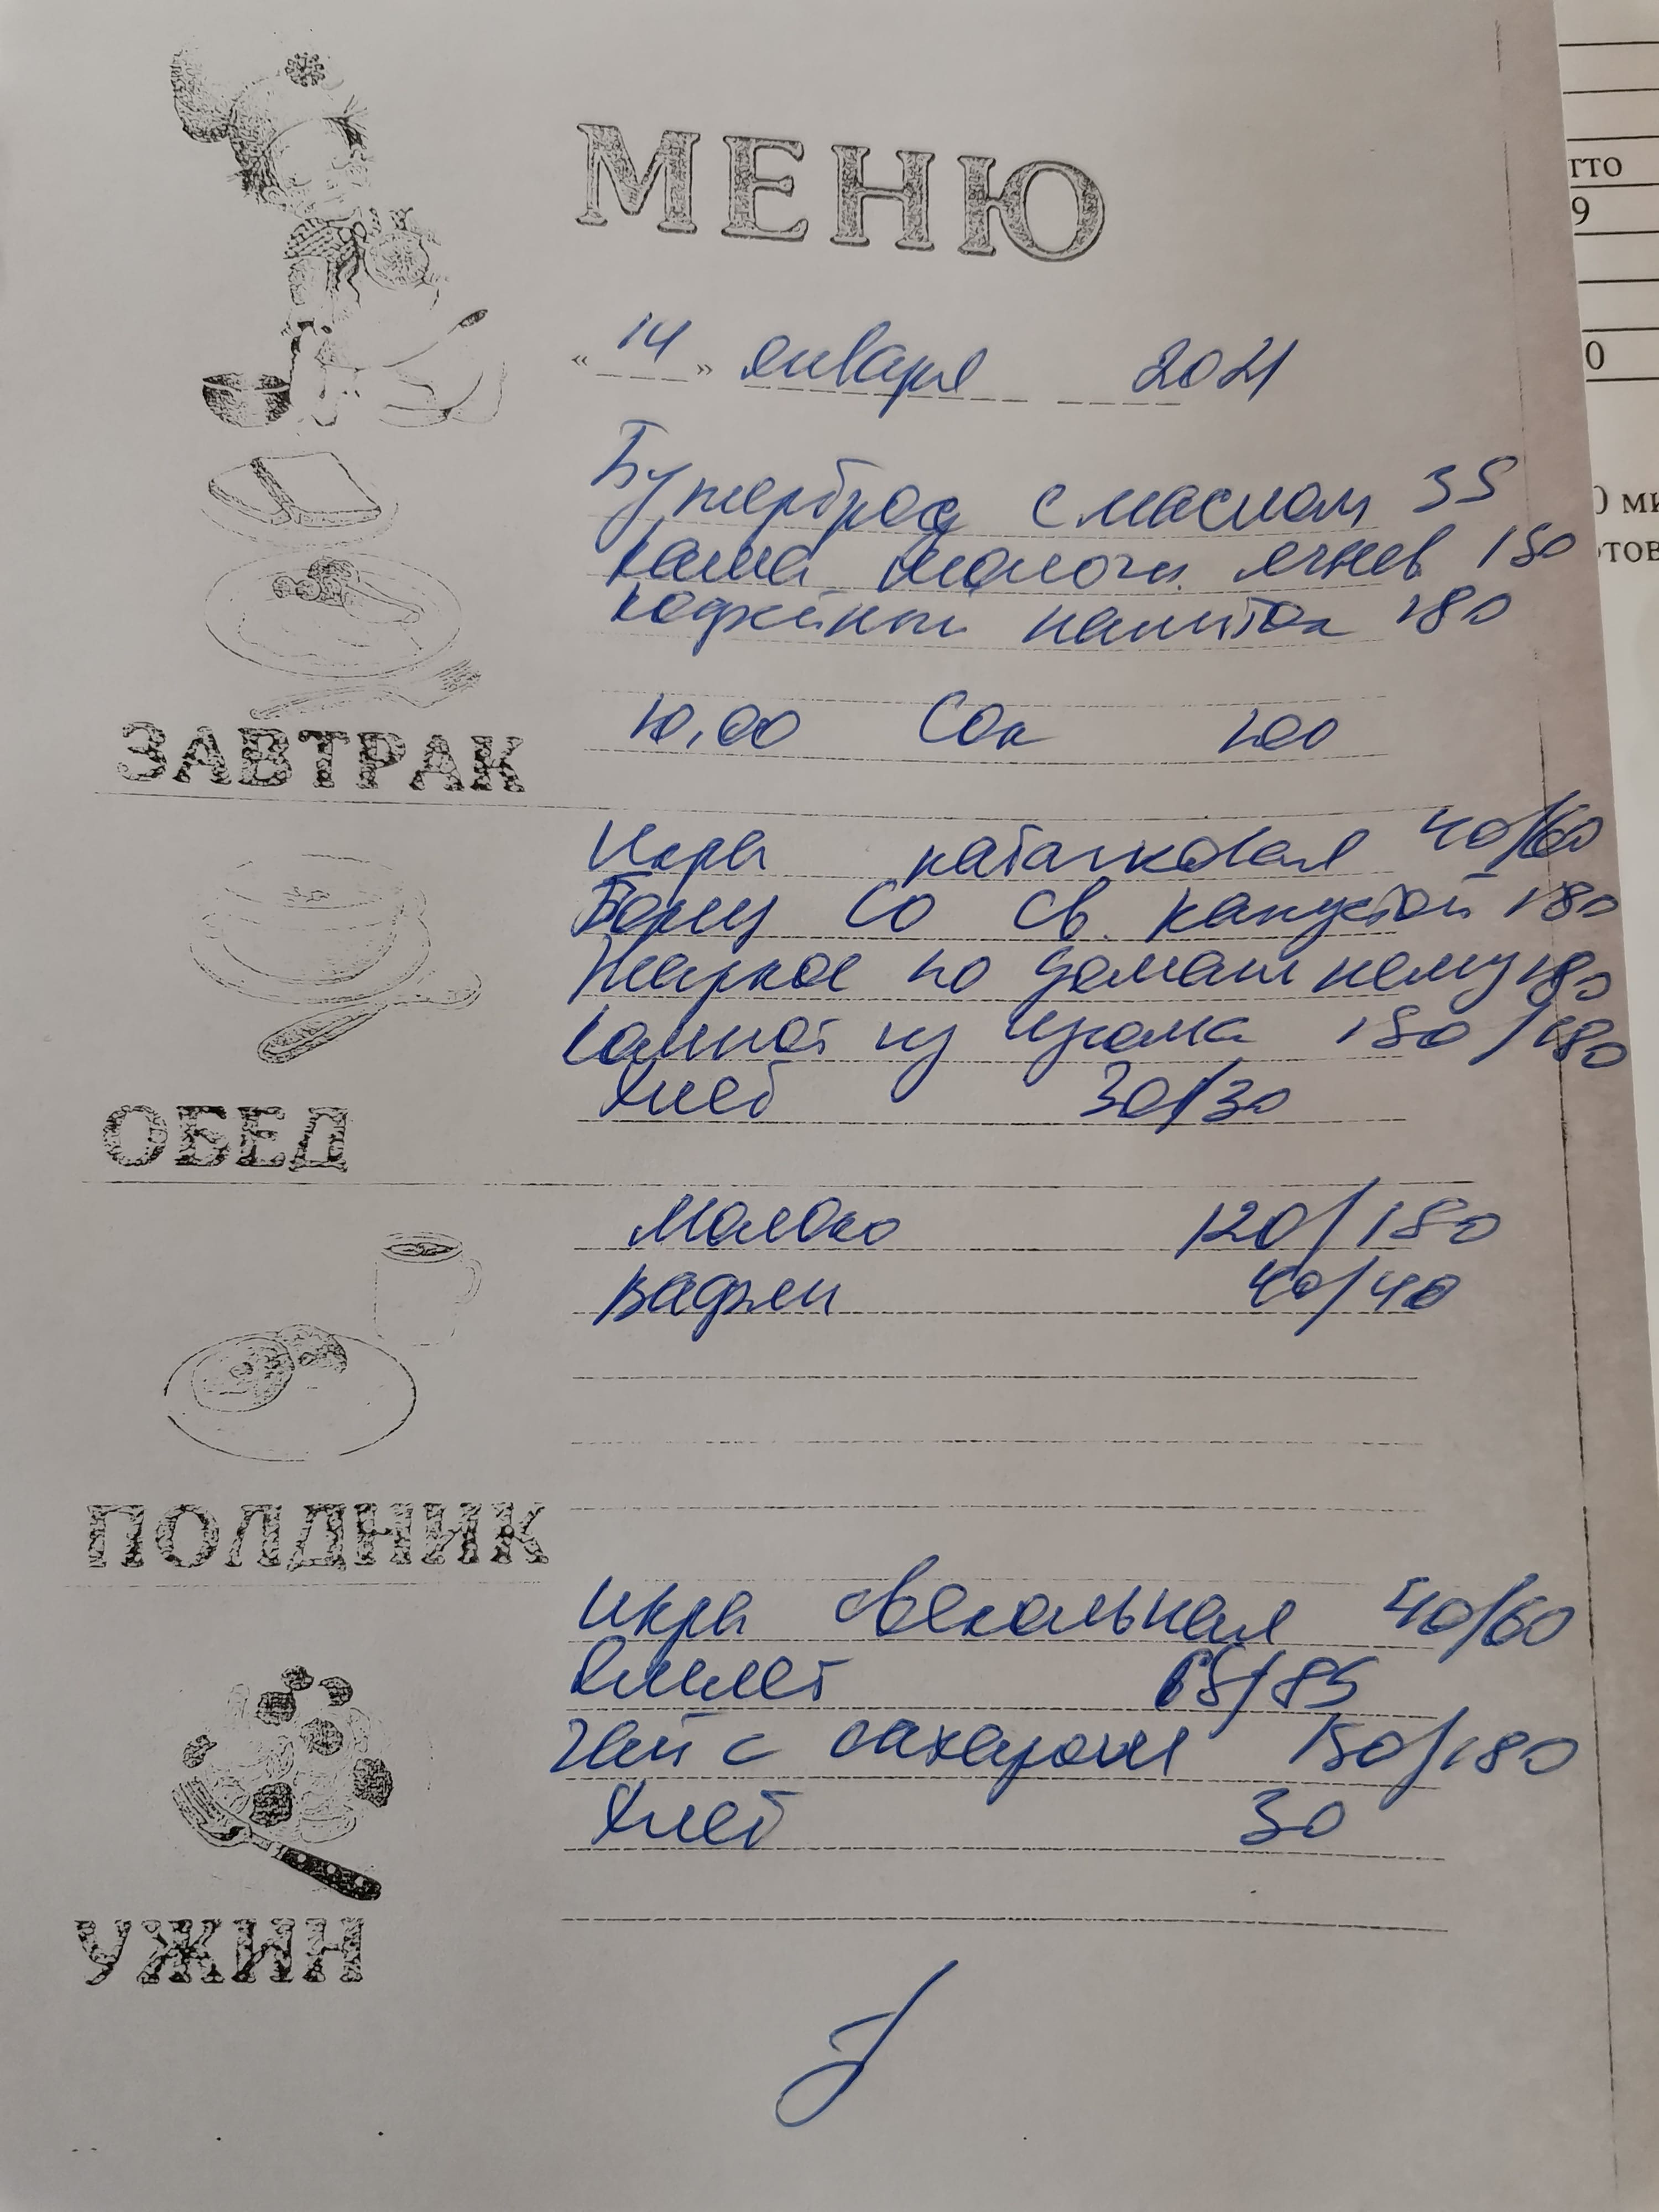 МЕНЮ
« 14 » января 2021
Бутерброд с маслом 35
Каша молочн. ячнев. 150
Кофейный напиток 180
10,00 Сок 100
ЗАВТРАК
Икра кабачковая 40/60
Борщ со св. капустой 180
Жаркое по домашнему 180
Компот из изюма 150/180
Хлеб 30/30
ОБЕД
Молоко 120/180
Вафли 40/40
ПОЛДНИК
Икра свекольная 40/60
Омлет 65/85
Чай с сахаром 150/180
Хлеб 30
УЖИН
тто
9
0
0 ми